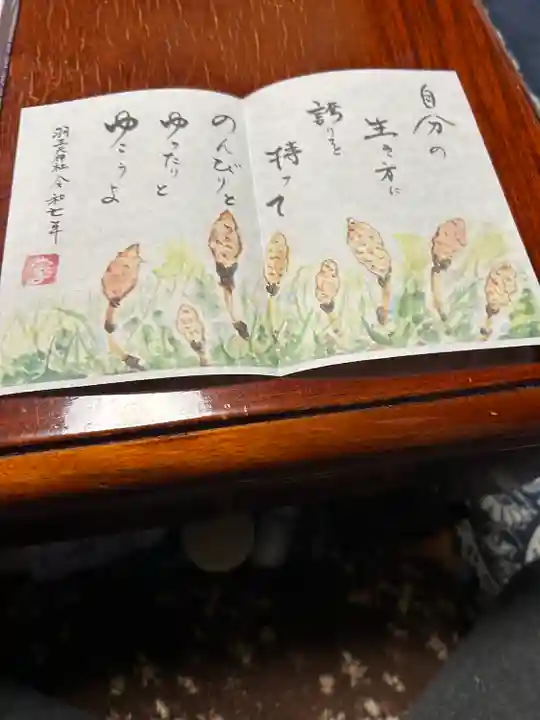 自分の
生き方に
誇りを
持って
のんびりと
ゆったりと
ゆこうよ
羽黒神社 令和七年